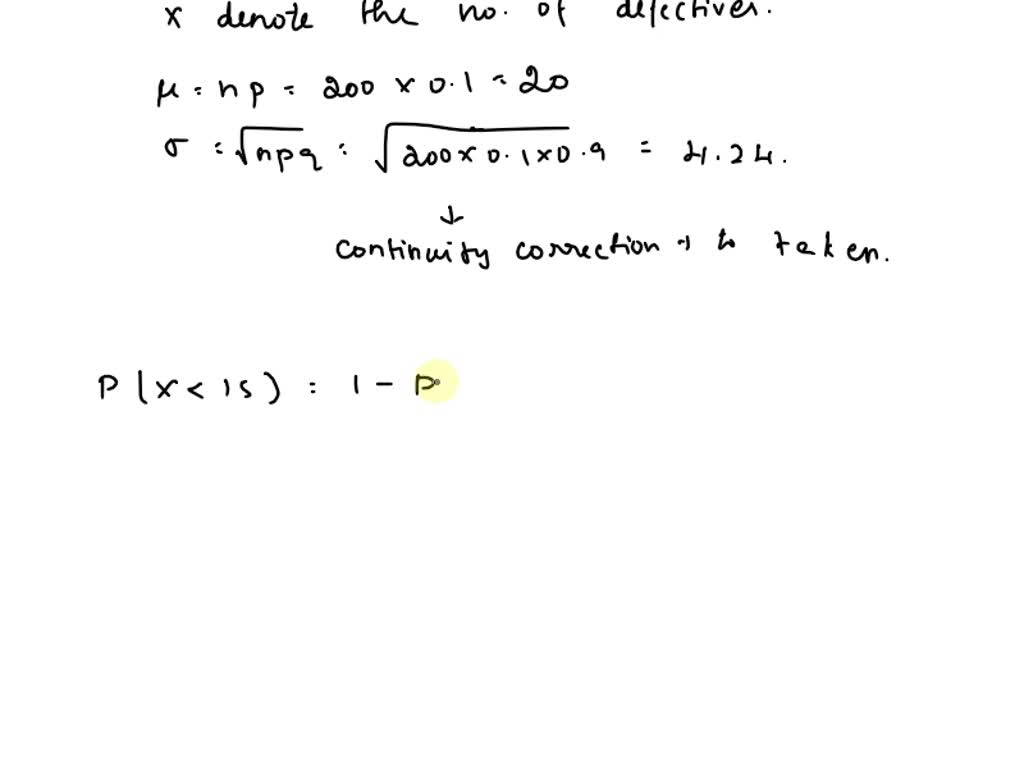 x denote the no. of defectives.
μ = np = 200 x 0.1 = 20
σ = √npq = √200x 0.1x0.9 = 4.24.
↓
continuity correction to taken.
P(x < 15) = 1 - P